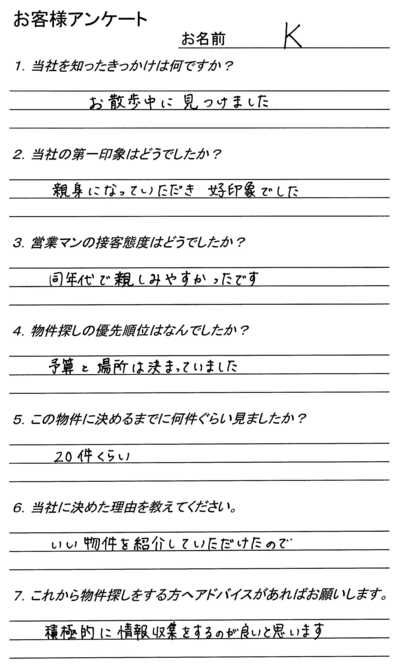 お客様アンケート
お名前 K
1. 当社を知ったきっかけは何ですか？
お散歩中に見つけました
2. 当社の第一印象はどうでしたか？
親身になっていただき 好印象でした
3. 営業マンの接客態度はどうでしたか？
同年代で親しみやすかったです
4. 物件探しの優先順位はなんでしたか？
予算と場所は決まっていました
5. この物件に決めるまでに何件ぐらい見ましたか？
20件くらい
6. 当社に決めた理由を教えてください。
いい物件を紹介していただけたので
7. これから物件探しをする方へアドバイスがあればお願いします。
積極的に情報収集をするのが良いと思います